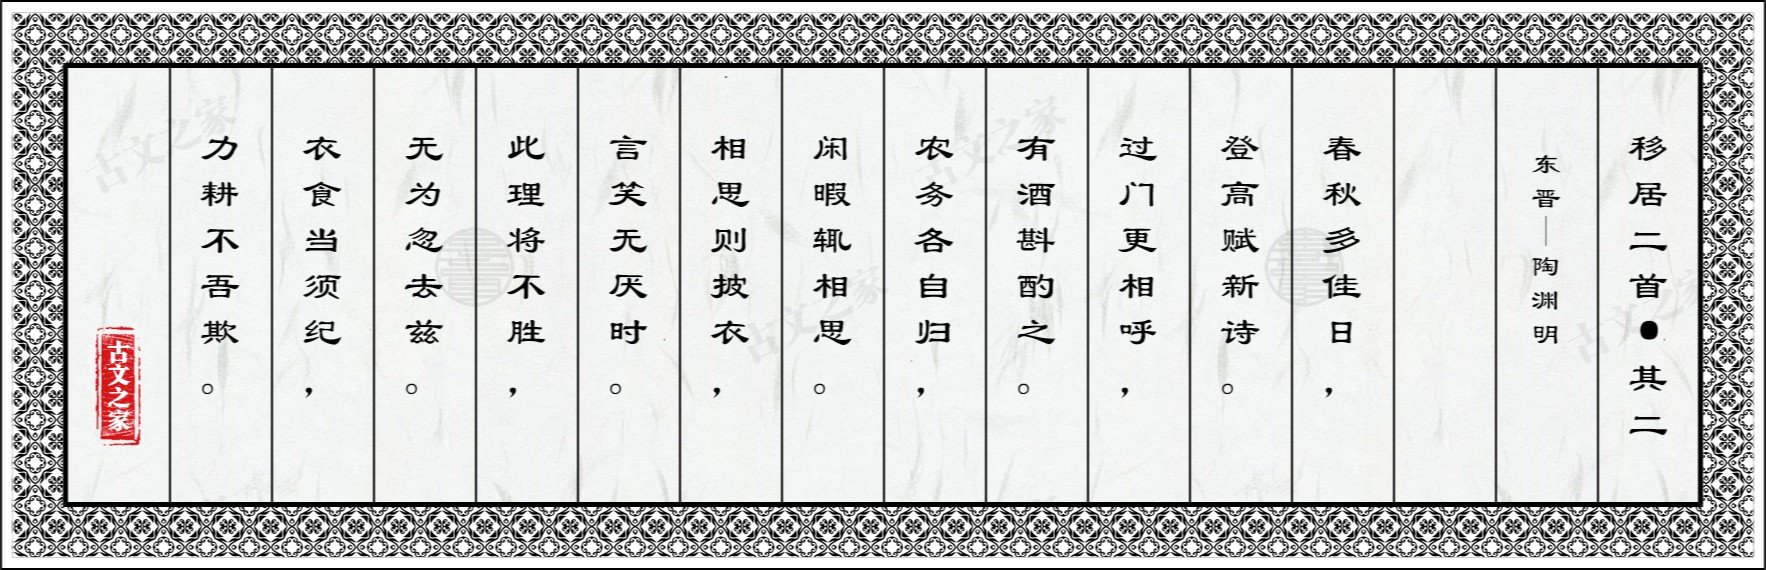 移居二首●其二
东晋—陶渊明
春秋多佳日，
登高赋新诗。
过门更相呼，
有酒斟酌之。
农务各自归，
闲暇辄相思。
相思则披衣，
言笑无厌时。
此理将不胜，
无为忽去兹。
衣食当须纪，
力耕不吾欺。
古文之家
古文之家
古文之家
古文之家
古文之家